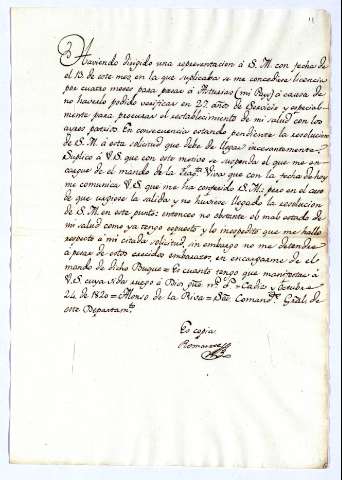 Haviendo dirigido una representacion á S.M. con fecha de
el 13. de este mes, en la que suplicaba se me concediese licencia
por cuatro meses para pasar á Asturias (mi Pays) á causa de
no haverlo podido verificar en 22. años de Servicio y especial-
mente para procurar el restablecimiento de mi salud con los
ayres patrios. En consecuencia estando pendiente la resolucion
de S.M. á esta solicitud que debe de llegar incesantemente.
Suplico á V.S. que con este motivo se suspenda el que me en-
cargue de el mando de la Frag.ta Viva que con la fecha de hoy
me comunica V.S. que me ha conferido S.M.; pero en el caso
de que urgiese la salida y no hubiese llegado la resolucion
de S.M. en este punto; entonces no obstante el mal estado de
mi salud como ya tengo expuesto y lo inexpedito que me hallo
respecto á mi citada solicitud, sin embargo no me detendré
á pesar de estos crecidos embarazos, en encargarme de el
mando de dicho Buque = Es cuanto tengo que manifestar á
V.S. cuya vida ruego á Dios gue. m.s a.s = Cadiz y Octubre
24. de 1820 = Alonso de la Riva = Sor. Comand.te Gral. de
este Departam.to
Es copia